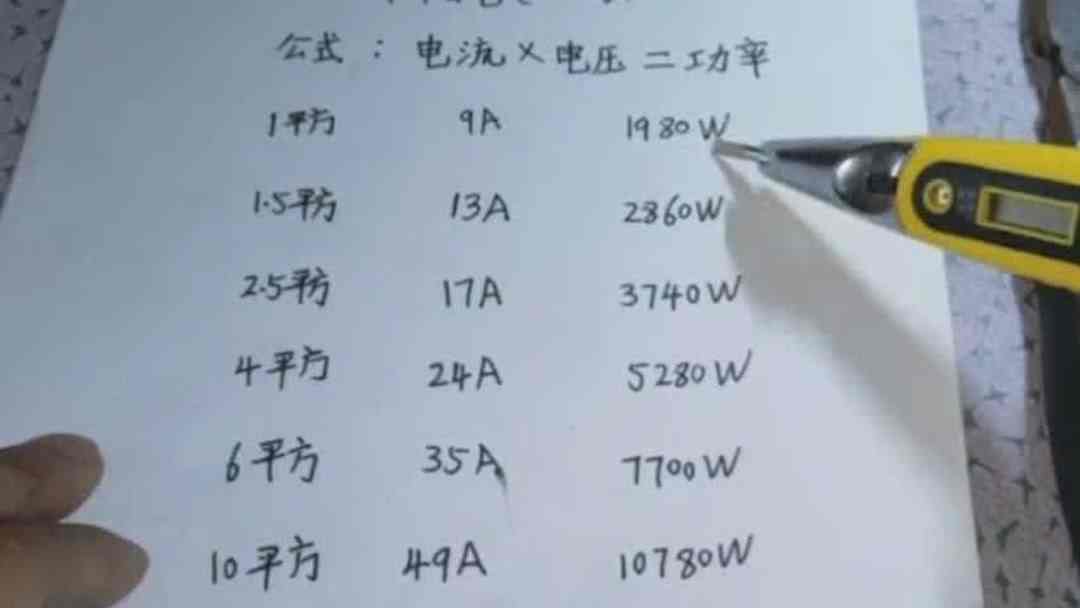 公式：电流×电压=功率
1平方 9A 1980W
1.5平方 13A 2860W
2.5平方 17A 3740W
4平方 24A 5280W
6平方 35A 7700W
10平方 49A 10780W